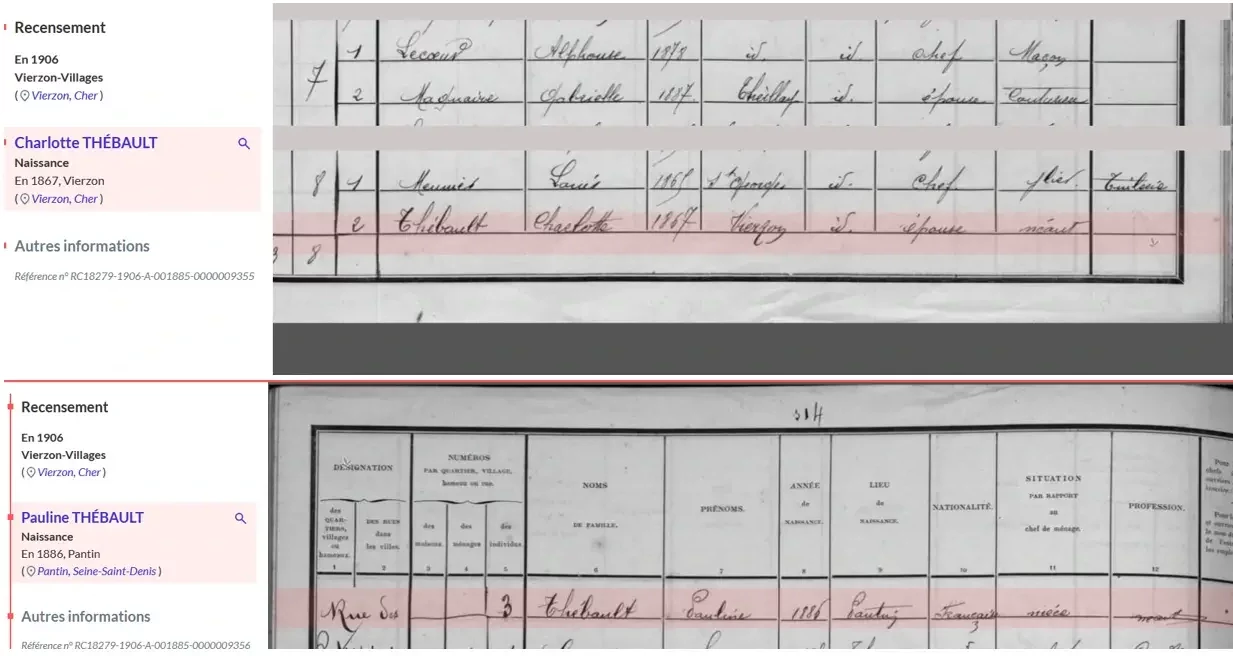 Recensement
En 1906
Vierzon-Villages
( Vierzon, Cher )
Charlotte THÉBAULT
Naissance
En 1867, Vierzon
( Vierzon, Cher )
Autres informations
Référence n° RC18279-1906-A-001885-0000009355
7 1 Lecoeur Alphonse 1878 id. id. chef Maçon
2 Magnaire Gabrielle 1887 Theillay id. épouse Couturière
8 1 Meunier Louis 1865 St Georges id. Chef jlier. Tuilerie
2 Thébault Charlotte 1867 Vierzon id. épouse néant
3 8
Recensement
En 1906
Vierzon-Villages
( Vierzon, Cher )
Pauline THÉBAULT
Naissance
En 1886, Pantin
( Pantin, Seine-Saint-Denis )
Autres informations
Référence n° RC18279-1906-A-001885-0000009356
314
DÉSIGNATION
des QUARTIERS, villages ou hameaux.
DES RUES dans les villes.
NUMÉROS
PAR QUARTIER, VILLAGE,
hameau ou rue.
des maisons.
des ménages
des individus.
NOMS
DE FAMILLE.
PRÉNOMS.
ANNÉE
de
NAISSANCE.
LIEU
de
NAISSANCE.
NATIONALITÉ.
SITUATION
PAR RAPPORT
au
chef de ménage.
PROFESSION.
Pour
1 2 3 4 5 6 7 8 9 10 11 12
Rue des 3 Thébault Pauline 1886 Pantin Française nièce néant